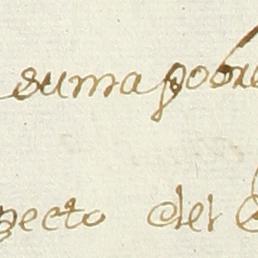 suma pobre
pecto del